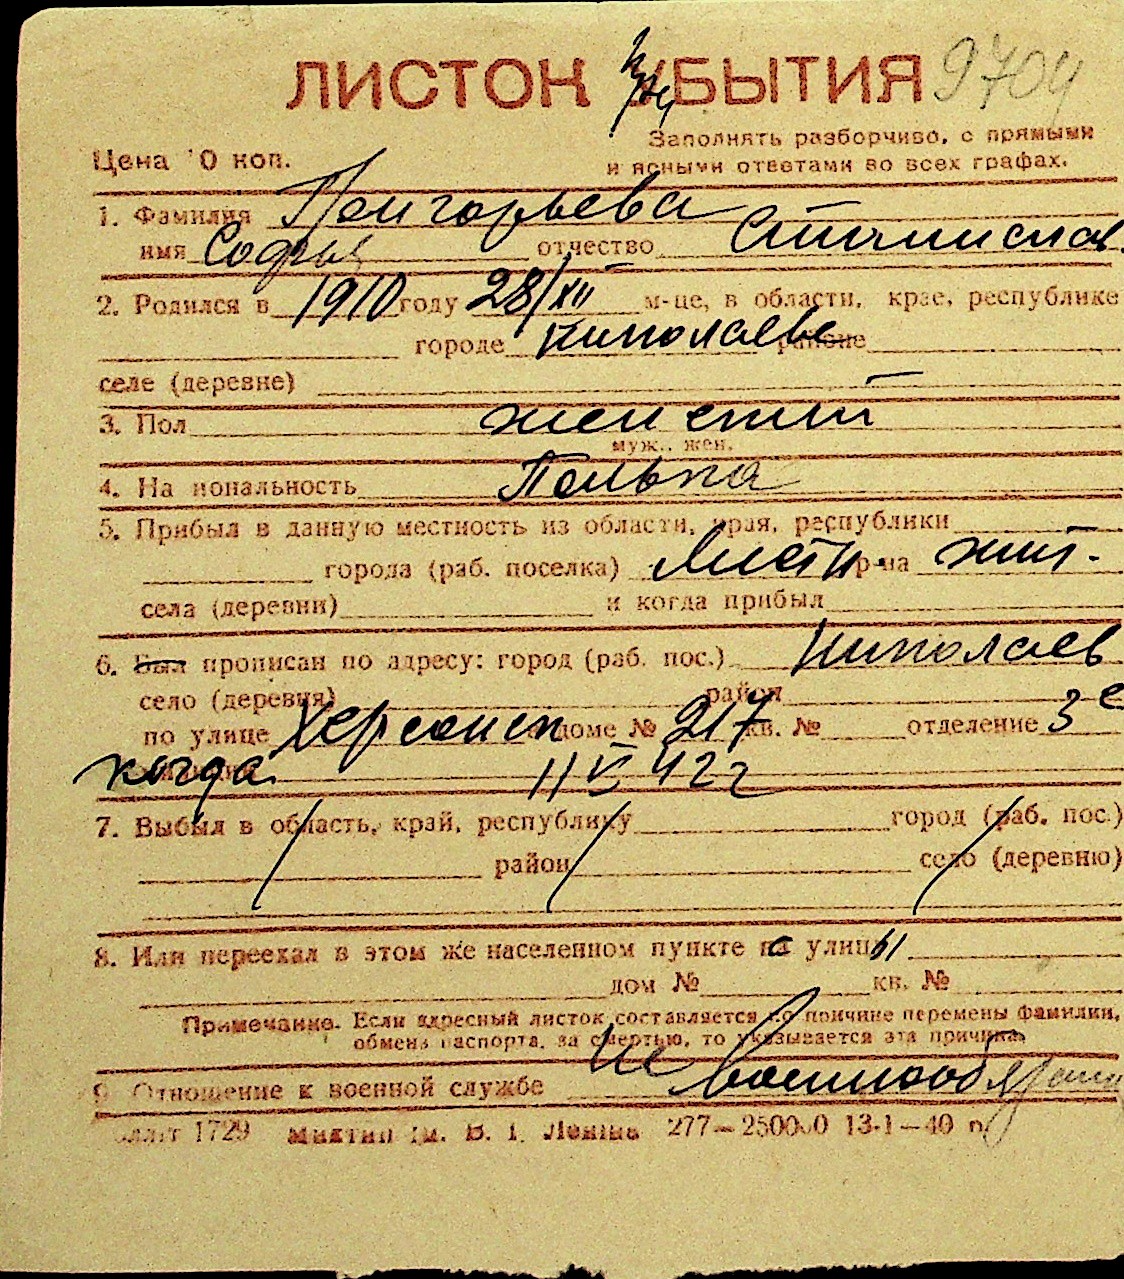 ЛИСТОК При БЫТИЯ 9704
Заполнять разборчиво, с прямыми
Цена 10 коп. и ясными ответами во всех графах.
1. Фамилия Григорьева
имя Софья отчество Станислав.
2. Родился в 1910 году 28/XII м-це, в области, крае, республике
городе Николаеве районе
селе (деревне) —
3. Пол женский
муж., жен.
4. На иональность Полька
5. Прибыл в данную местность из области, края, республики
города (раб. поселка) р-на жит.
села (деревни) и когда прибыл
6. Был прописан по адресу: город (раб. пос.) Николаев
село (деревня) район
по улице Херсонск доме № 217 кв. № отделение 3 е
когда 11 V 42 г
7. Выбыл в область, край, республику город (раб. пос.)
район село (деревню)
8. Или переехал в этом же населенном пункте с улицы
дом № кв. №
Примечание. Если адресный листок составляется по причине перемены фамилии,
обмена паспорта, за смертью, то указывается эта причина.
9. Отношение к военной службе не военнообязанн
1729 им. В. І. Леніна 277—250000 13-1—40 р.